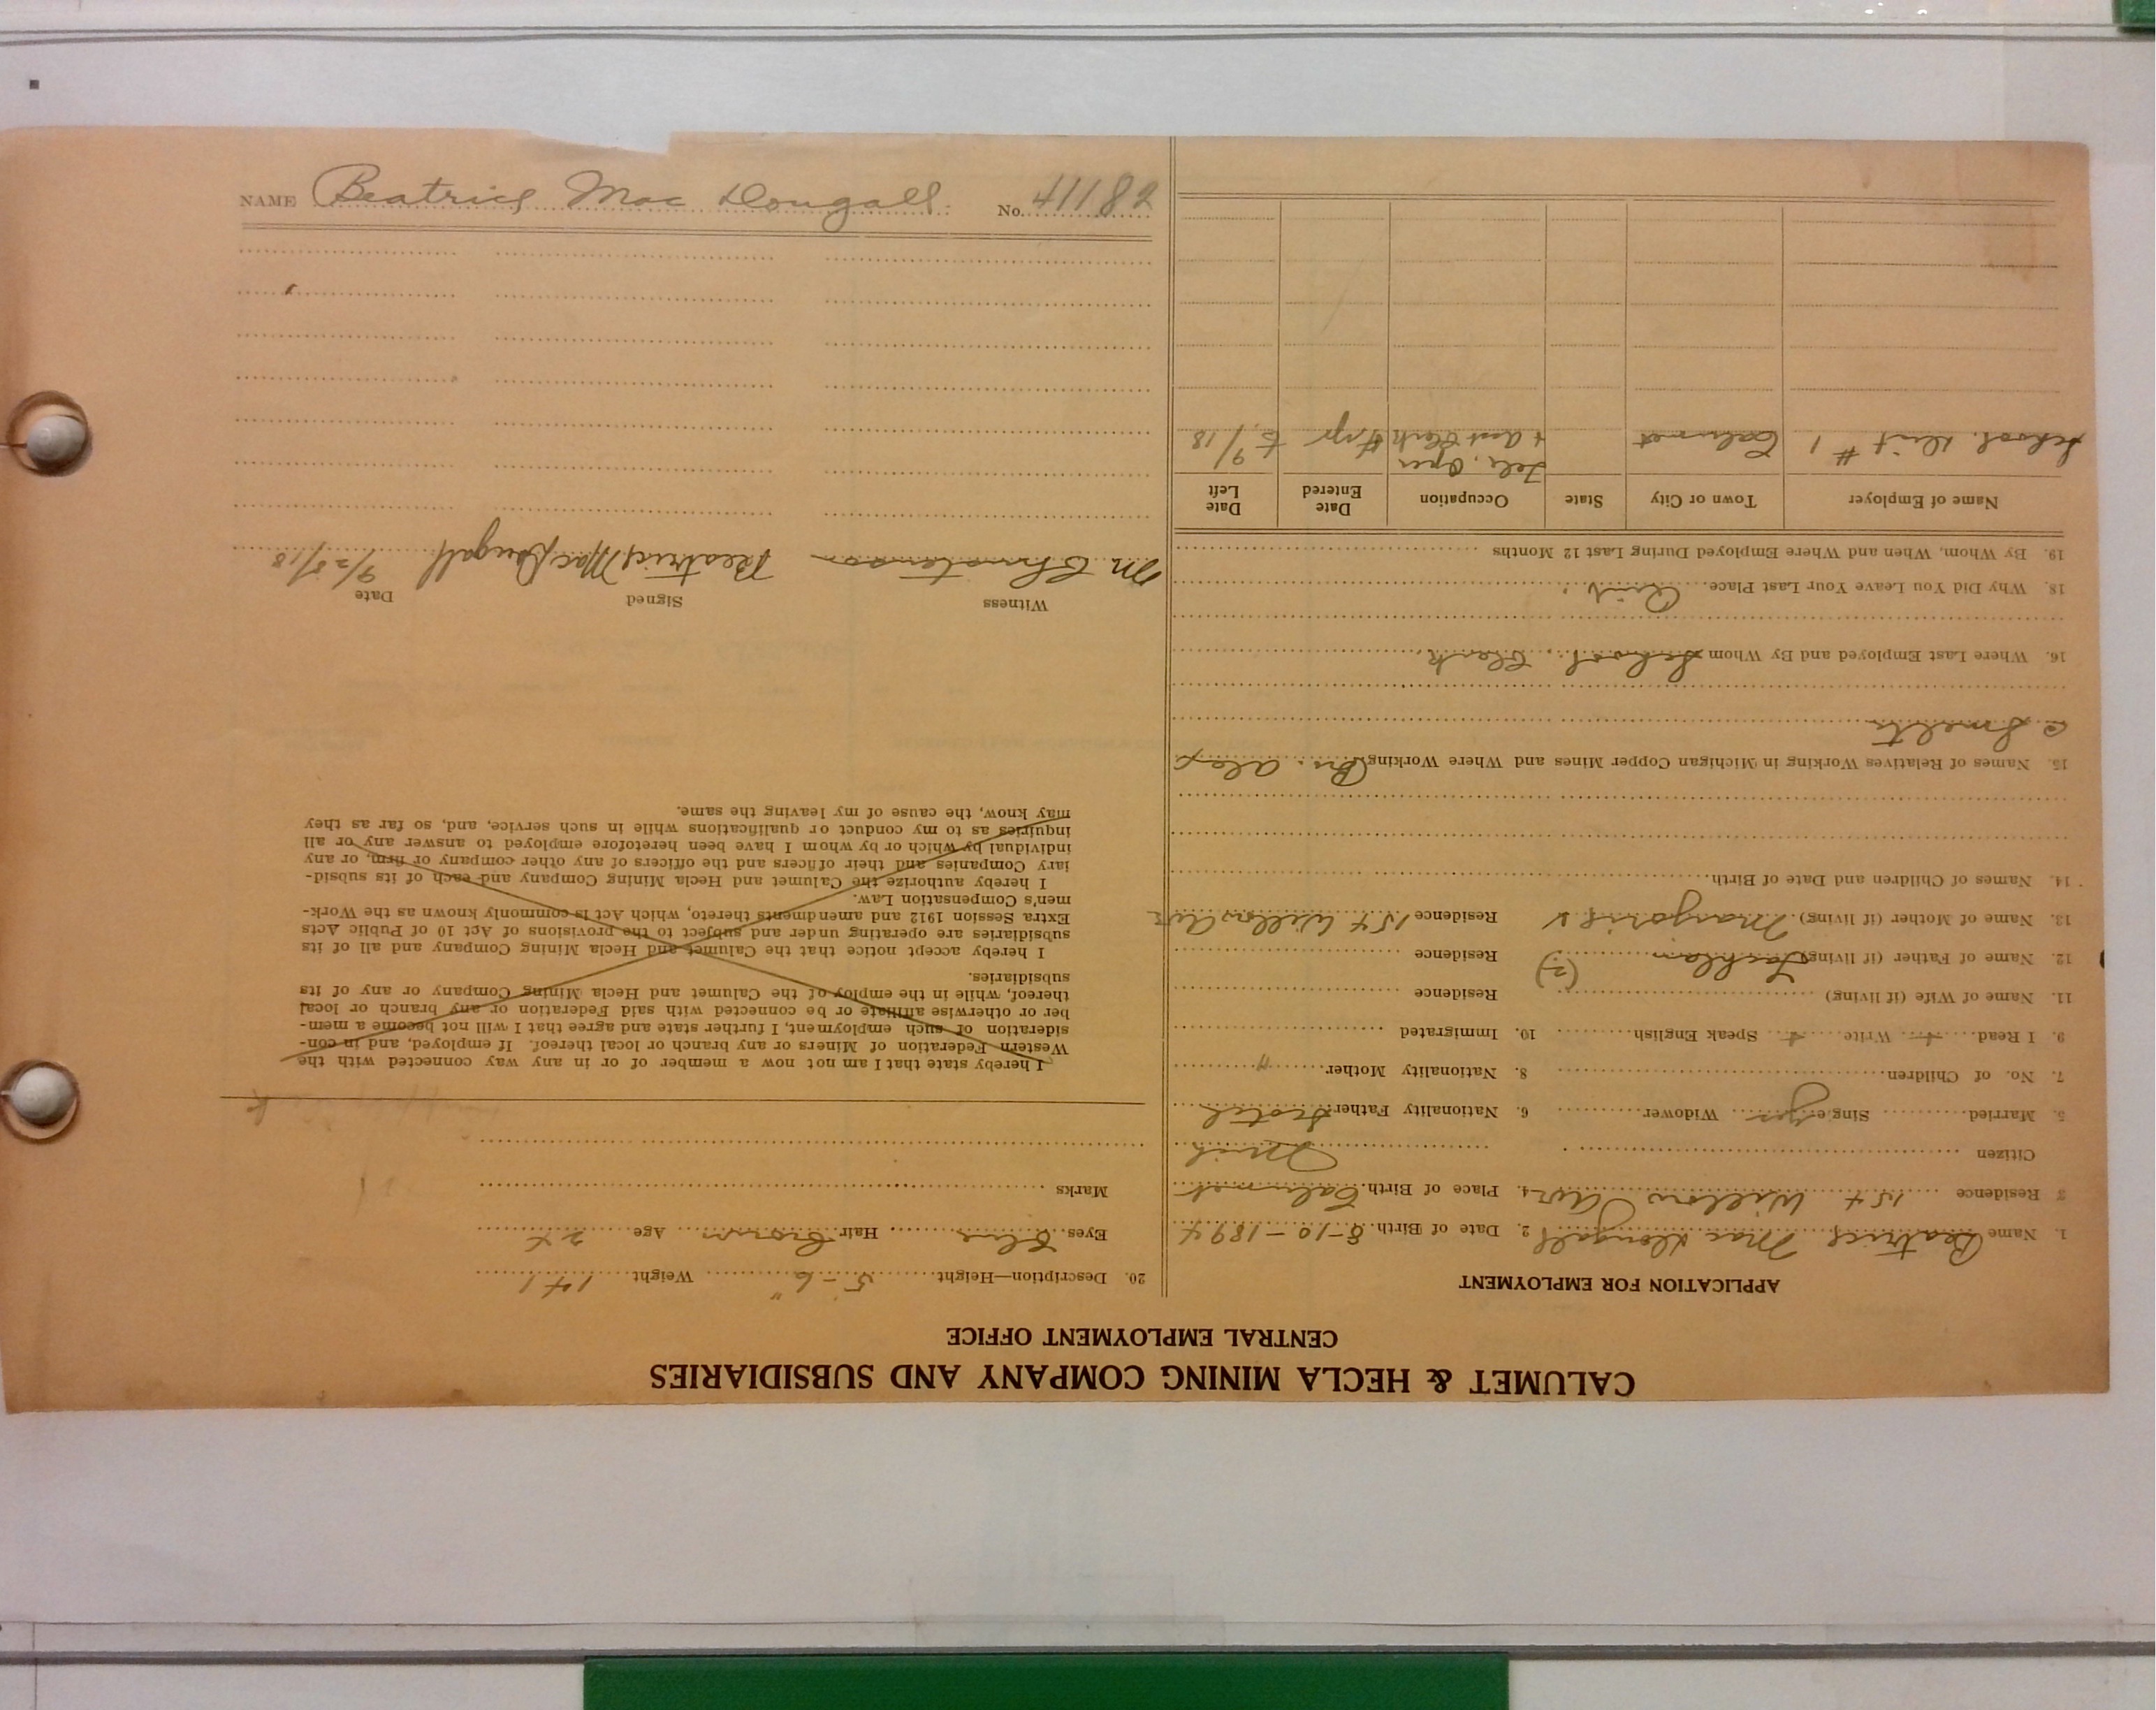 CALUMET & HECLA MINING COMPANY AND SUBSIDIARIES
CENTRAL EMPLOYMENT OFFICE
APPLICATION FOR EMPLOYMENT
1. Name Beatrice Mac Dougall 2. Date of Birth 8-10-1894
3 Residence 154 Willow Ave 4. Place of Birth Calumet
Citizen Mich
5. Married Single yes Widower 6. Nationality Father Scotch
7. No. of Children 8. Nationality Mother "
9. I Read + Write + Speak English 10. Immigrated
11. Name of Wife (if living) Residence
12. Name of Father (if living) Lachlan (2) Residence
13. Name of Mother (if living) Marjorie Residence 154 Willow Ave
14. Names of Children and Date of Birth
15. Names of Relatives Working in Michigan Copper Mines and Where Working Br. Alex
Smelter
16. Where Last Employed and By Whom School Clerk
18. Why Did You Leave Your Last Place. Quit
19. By Whom, When and Where Employed During Last 12 Months
Name of Employer Town or City State Occupation Date Entered Date Left
School Dist #1 Calumet Tele. Oper & Asst Clerk 4 yr 9/5/18
20. Description—Height 5-6" Weight 141
Eyes Blue Hair Brown Age 24
Marks
I hereby state that I am not now a member of or in any way connected with the
Western Federation of Miners or any branch or local thereof. If employed, and in con-
sideration of such employment, I further state and agree that I will not become a mem-
ber or otherwise affiliate or be connected with said Federation or any branch or local
thereof, while in the employ of the Calumet and Hecla Mining Company or any of its
subsidiaries.
I hereby accept notice that the Calumet and Hecla Mining Company and all of its
subsidiaries are operating under and subject to the provisions of Act 10 of Public Acts
Extra Session 1912 and amendments thereto, which Act is commonly known as the Work-
men's Compensation Law.
I hereby authorize the Calumet and Hecla Mining Company and each of its subsid-
iary Companies and their officers and the officers of any other company or firm, or any
individual by which or by whom I have been heretofore employed to answer any or all
inquiries as to my conduct or qualifications while in such service, and, so far as they
may know, the cause of my leaving the same.
Witness Signed Date
M Christenson Beatrice MacDougall 9/28/18
NAME Beatrice Mac Dougall No. 41182